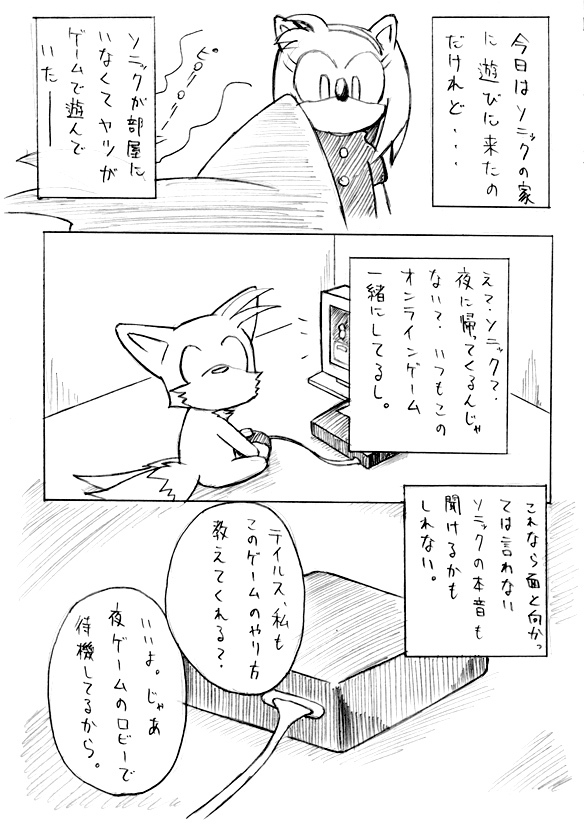 今日はソニックの家
に遊びに来たの
だけれど・・・
ピロリーピロリー
ソニックが部屋に
いなくてヤツが
ゲームで遊んで
いた――
えて、ソニック？、
夜に帰ってくるんじゃ
ない？、いつもこの
オンラインゲーム
一緒にしてるし。
これなら面と向かっ
ては言わない
ソニックの本音も
聞けるかも
しれない。
テイルス、私も
このゲームのやり方
教えてくれる？
いいよ。じゃあ
夜ゲームのロビーで
待機してるから。